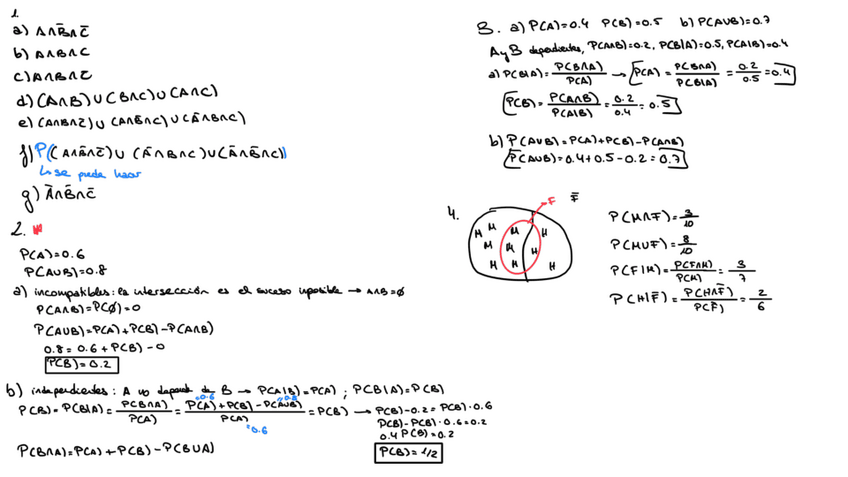 1.
a) A∩B̄∩C̄
b) A∩B∩C
c) A∩B∩C̄
d) (A∩B) ∪ (B∩C) ∪ (A∩C)
e) (A∩B∩C̄) ∪ (A∩B̄∩C) ∪ (Ā∩B∩C)
f) P((A∩B̄∩C̄) ∪ (Ā∩B∩C) ∪ (Ā∩B̄∩C))
↳ se puede hacer
g) Ā∩B̄∩C̄
2.
P(A)=0.6
P(A∪B)=0.8
a) incompatibles: la intersección es el suceso imposible → A∩B=∅
P(A∩B)=P(∅)=0
P(A∪B)=P(A)+P(B)-P(A∩B)
0.8=0.6+P(B)-0
P(B)=0.2
b) independientes: A no depende de B → P(A|B)=P(A) ; P(B|A)=P(B)
P(B)=P(B|A)= P(B∩A)/P(A) = P(A)+P(B)-P(A∪B)/P(A) = P(B) → P(B)-0.2=P(B)·0.6
=0.6 =0.8
=0.6
P(B)-P(B)·0.6=0.2
0.4 P(B)=0.2
P(B)=1/2
P(B∩A)=P(A)+P(B)-P(B∪A)
3. a) P(A)=0.4 P(B)=0.5 b) P(A∪B)=0.7
A y B dependientes, P(A∩B)=0.2, P(B|A)=0.5, P(A|B)=0.4
a) P(B|A)= P(B∩A)/P(A) → P(A)= P(B∩A)/P(B|A) = 0.2/0.5 =0.4
P(B)= P(A∩B)/P(A|B) = 0.2/0.4 = 0.5
b) P(A∪B)=P(A)+P(B)-P(A∩B)
P(A∪B)=0.4+0.5-0.2=0.7
4.
F F̄
M M M H
M M H
M M H
P(M∩F)= 3/10
P(M∪F)= 8/10
P(F|M)= P(F∩M)/P(M) = 3/7
P(H|F̄)= P(H∩F̄)/P(F̄) = 2/6